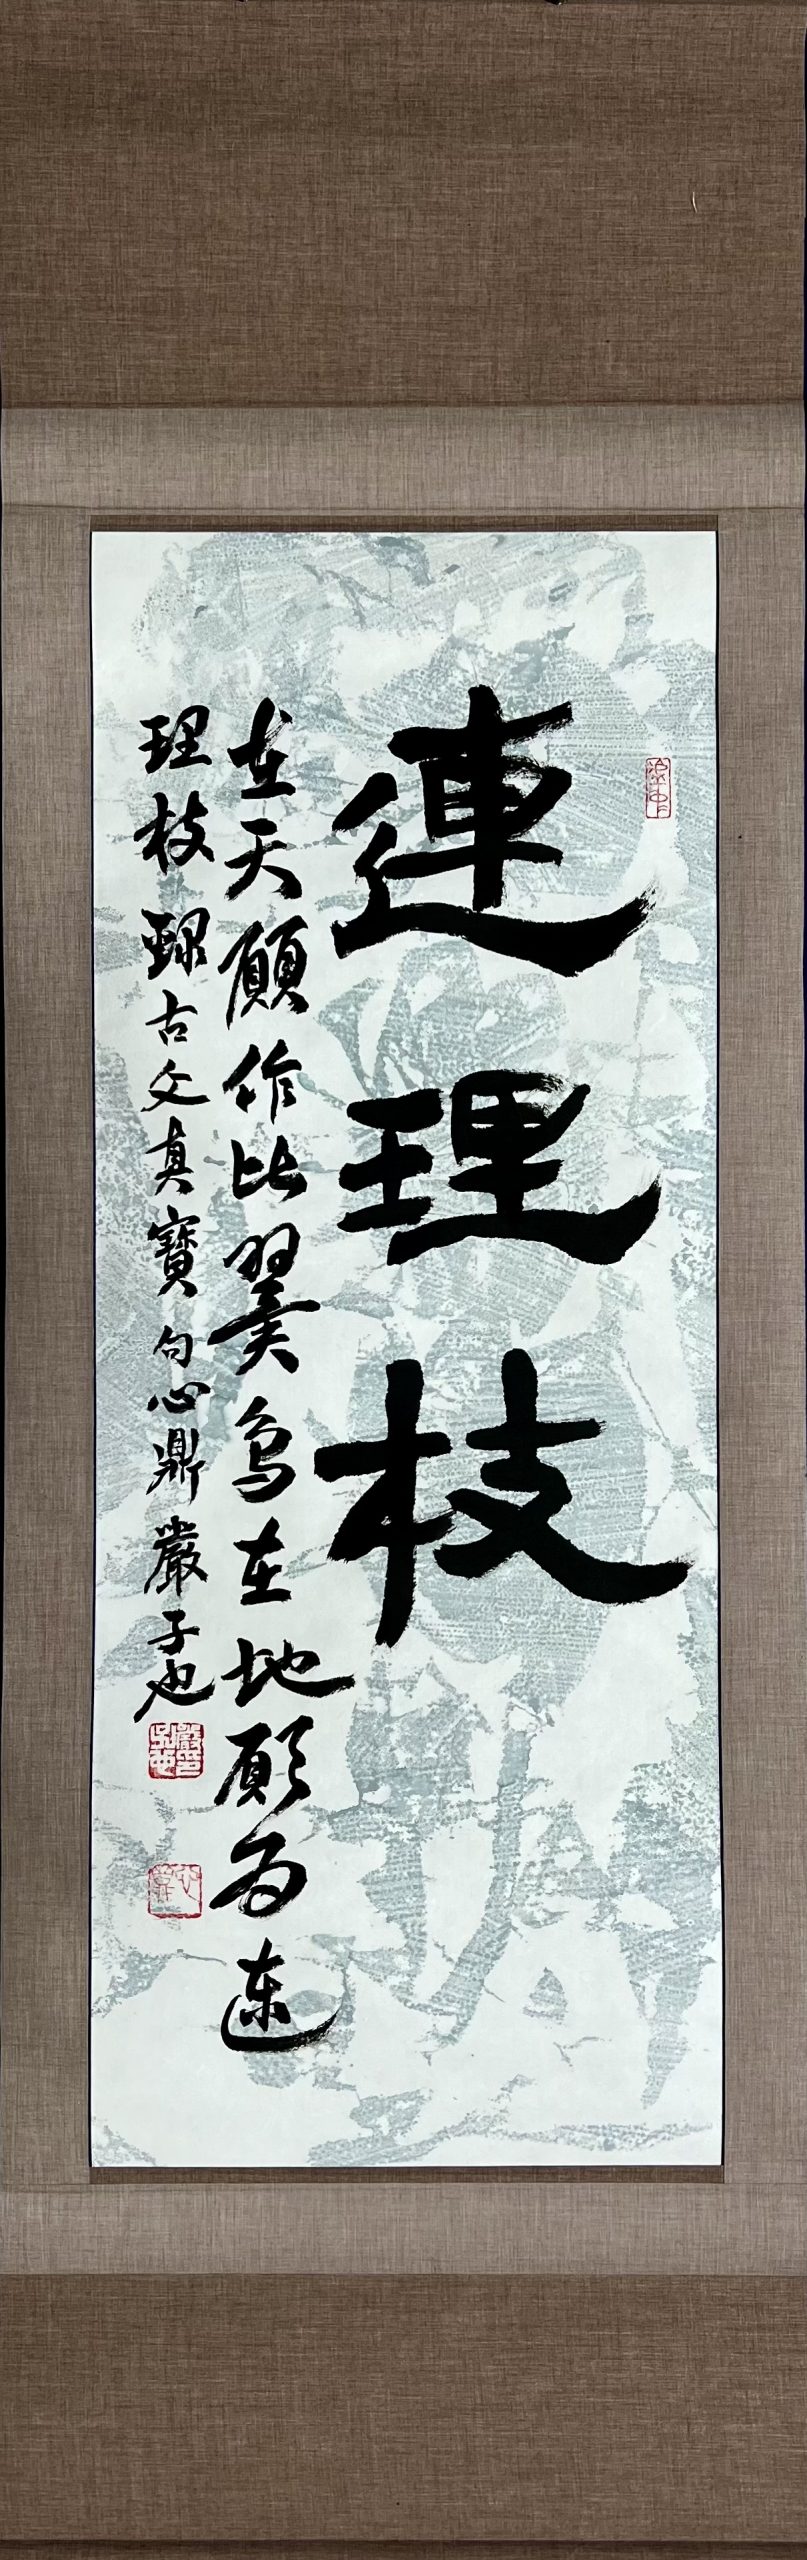 連理枝
在天願作比翼鳥在地願為連
理枝 録古文真寶句心鼎嚴子也